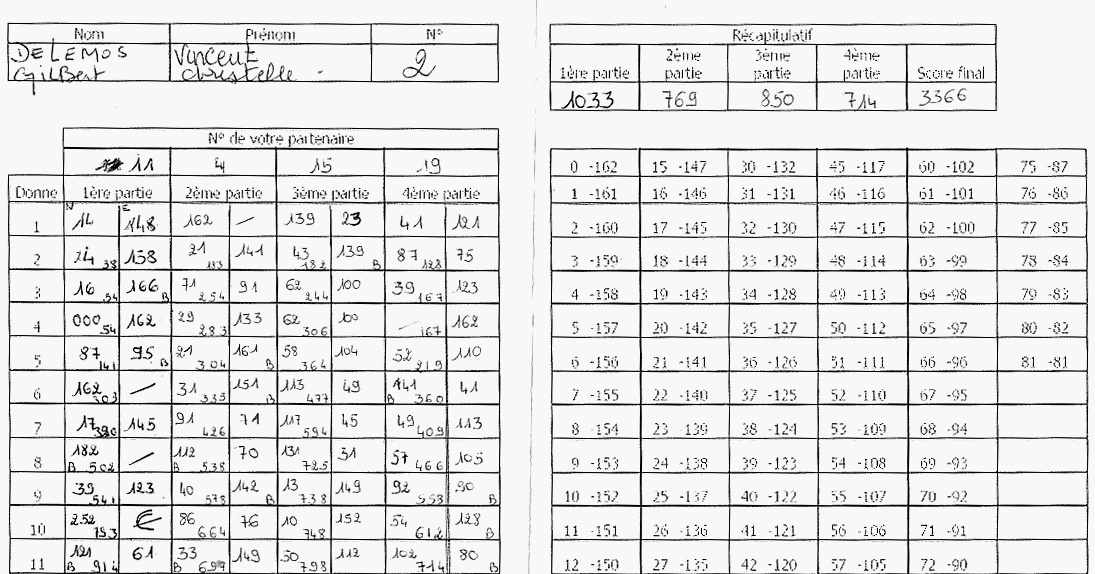 Nom Prénom N°
DELEMOS Vincent 2
Gilbert Christelle
Récapitulatif
1ère partie 2ème partie 3ème partie 4ème partie Score final
1033 769 850 714 3366
N° de votre partenaire
11 4 15 19
Donne 1ère partie 2ème partie 3ème partie 4ème partie
N E
1 14 148 162 — 139 23 41 121
2 24 38 138 21 183 141 43 182 139 B 87 128 75
3 16 54 166 B 71 254 91 62 244 100 39 167 123
4 000 54 162 29 283 133 62 306 100 — 167 162
5 87 141 95 B 21 304 161 B 58 364 104 52 219 110
6 162 303 — 31 335 151 B 113 477 49 141 B 360 41
7 17 320 145 91 426 71 117 594 45 49 409 113
8 182 B 502 — 112 B 538 70 131 725 31 57 466 105
9 39 541 123 40 578 142 B 13 738 149 92 558 90 B
10 252 793 86 664 76 10 748 152 54 612 128 B
11 121 B 914 61 33 B 697 149 50 798 112 102 714 80 B
0 -162 15 -147 30 -132 45 -117 60 -102 75 -87
1 -161 16 -146 31 -131 46 -116 61 -101 76 -86
2 -160 17 -145 32 -130 47 -115 62 -100 77 -85
3 -159 18 -144 33 -129 48 -114 63 -99 78 -84
4 -158 19 -143 34 -128 49 -113 64 -98 79 -83
5 -157 20 -142 35 -127 50 -112 65 -97 80 -82
6 -156 21 -141 36 -126 51 -111 66 -96 81 -81
7 -155 22 -140 37 -125 52 -110 67 -95
8 -154 23 -139 38 -124 53 -109 68 -94
9 -153 24 -138 39 -123 54 -108 69 -93
10 -152 25 -137 40 -122 55 -107 70 -92
11 -151 26 -136 41 -121 56 -106 71 -91
12 -150 27 -135 42 -120 57 -105 72 -90